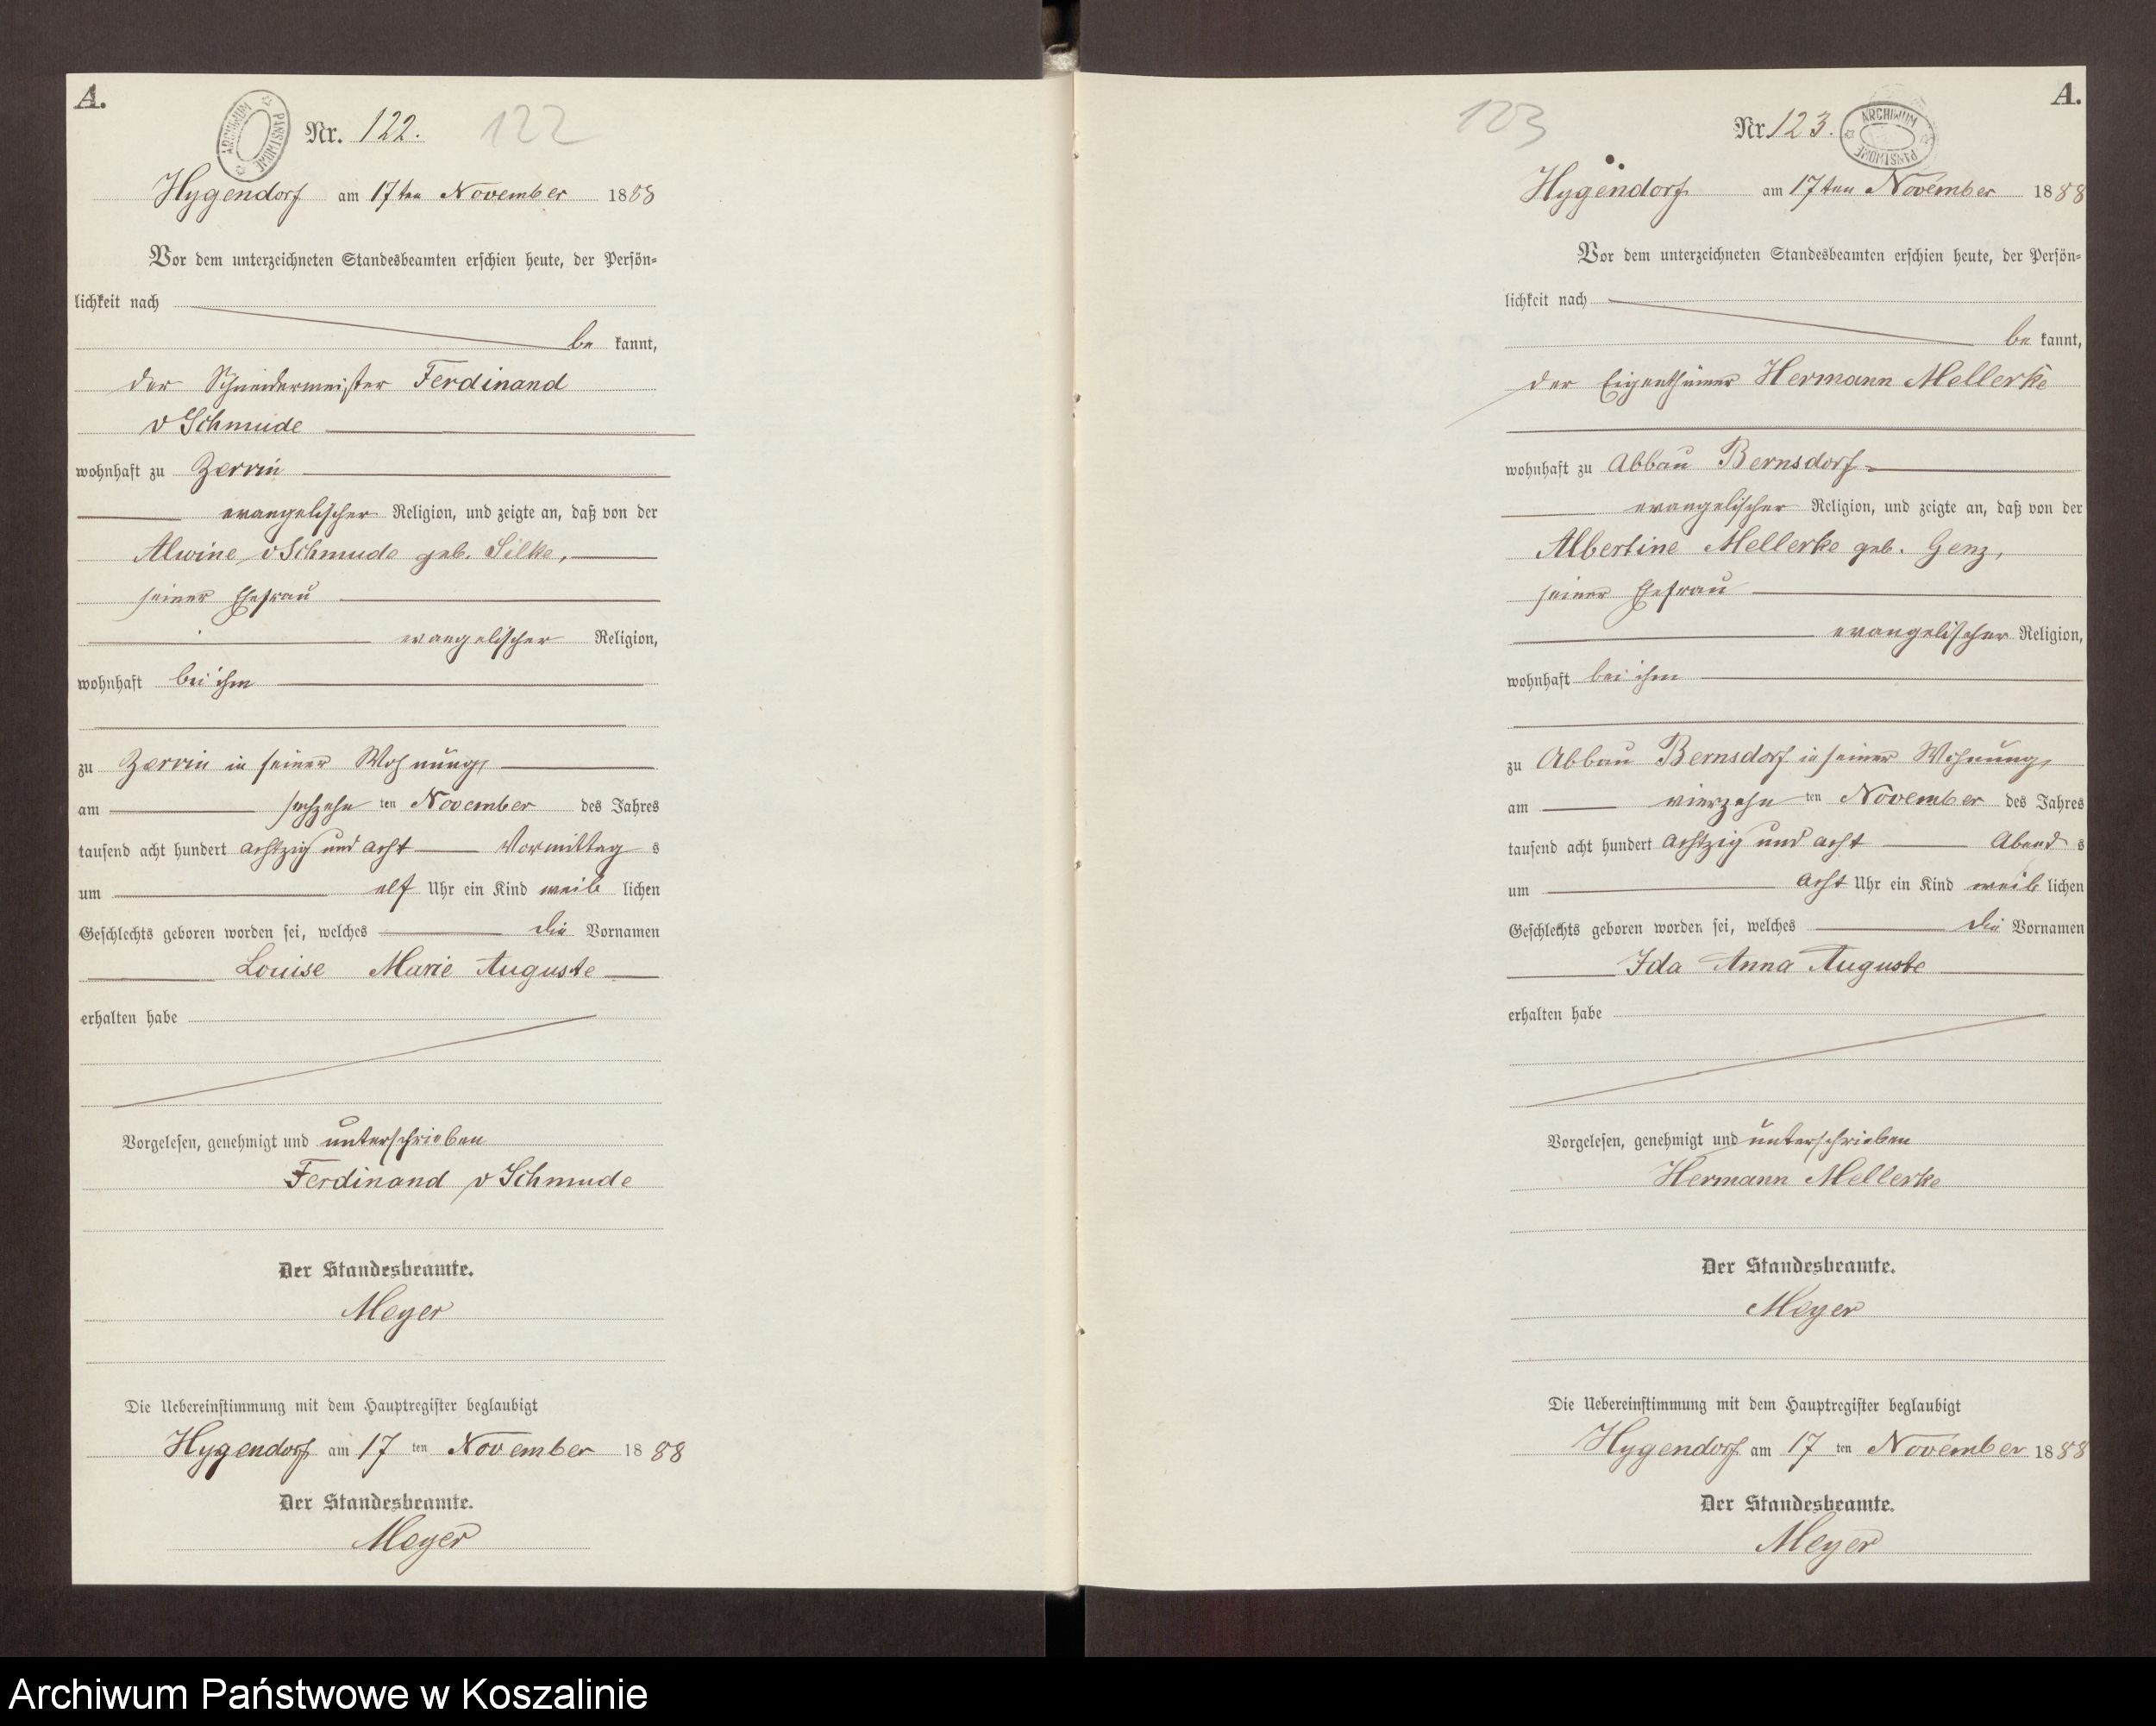 A.
ARCHIWUM PAŃSTWOWE
Nr. 122. 122
Hygendorf am 17ten November 1888
Vor dem unterzeichneten Standesbeamten erschien heute, der Persön-
lichkeit nach
be kannt,
der Schneidermeister Ferdinand
v Schmude
wohnhaft zu Zerrin
evangelischer Religion, und zeigte an, daß von der
Alwine v Schmude geb. Silke,
seiner Ehefrau
evangelischer Religion,
wohnhaft bei ihm
zu Zerrin in seiner Wohnung,
am sechzehn ten November des Jahres
tausend acht hundert achtzig und acht Vormittag s
um elf Uhr ein Kind weib lichen
Geschlechts geboren worden sei, welches die Vornamen
Louise Marie Auguste
erhalten habe
Vorgelesen, genehmigt und unterschrieben
Ferdinand v Schmude
Der Standesbeamte.
Meyer
Die Uebereinstimmung mit dem Hauptregister beglaubigt
Hygendorf am 17 ten November 18 88
Der Standesbeamte.
Meyer
A.
123 Nr 123.
ARCHIWUM PAŃSTWOWE
Hygendorf am 17ten November 1888
Vor dem unterzeichneten Standesbeamten erschien heute, der Persön-
lichkeit nach
be kannt,
der Eigenthümer Hermann Mellerke
wohnhaft zu Abbau Bernsdorf
evangelischer Religion, und zeigte an, daß von der
Albertine Mellerke geb. Genz,
seiner Ehefrau
evangelischer Religion,
wohnhaft bei ihm
zu Abbau Bernsdorf in seiner Wohnung,
am vierzehn ten November des Jahres
tausend acht hundert achtzig und acht Abend s
um acht Uhr ein Kind weib lichen
Geschlechts geboren worden sei, welches die Vornamen
Ida Anna Auguste
erhalten habe
Vorgelesen, genehmigt und unterschrieben
Hermann Mellerke
Der Standesbeamte.
Meyer
Die Uebereinstimmung mit dem Hauptregister beglaubigt
Hygendorf am 17 ten November 1888
Der Standesbeamte.
Meyer
Archiwum Państwowe w Koszalinie